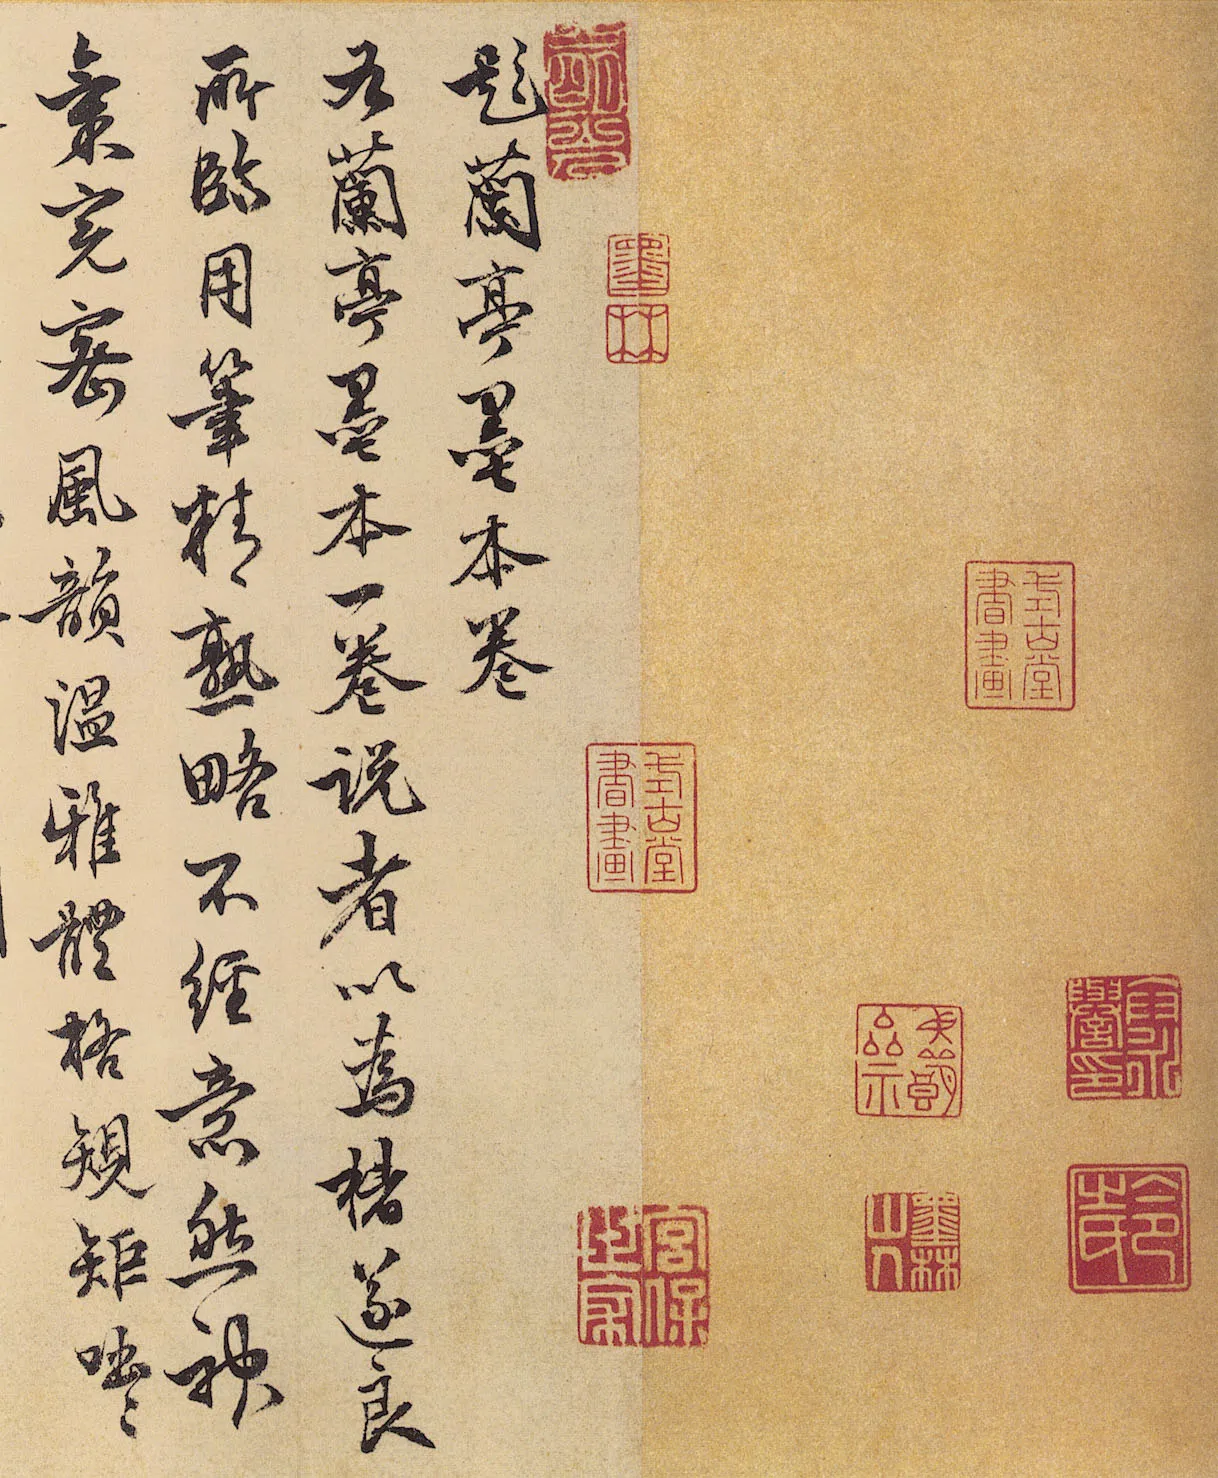 題蘭亭墨本卷
右蘭亭墨本一卷説者以為褚遂良
所臨用筆精熟略不經意然神
氣完密風韻温雅體格規矩
式古堂書畫
式古堂書畫
宮保世家
墨林山人
墨林